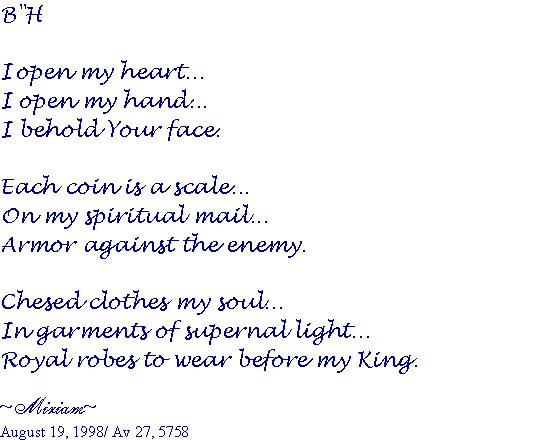 B"H
I open my heart...
I open my hand...
I behold Your face.
Each coin is a scale...
On my spiritual mail...
Armor against the enemy.
Chesed clothes my soul...
In garments of supernal light...
Royal robes to wear before my King.
~Miriam~
August 19, 1998/ Av 27, 5758